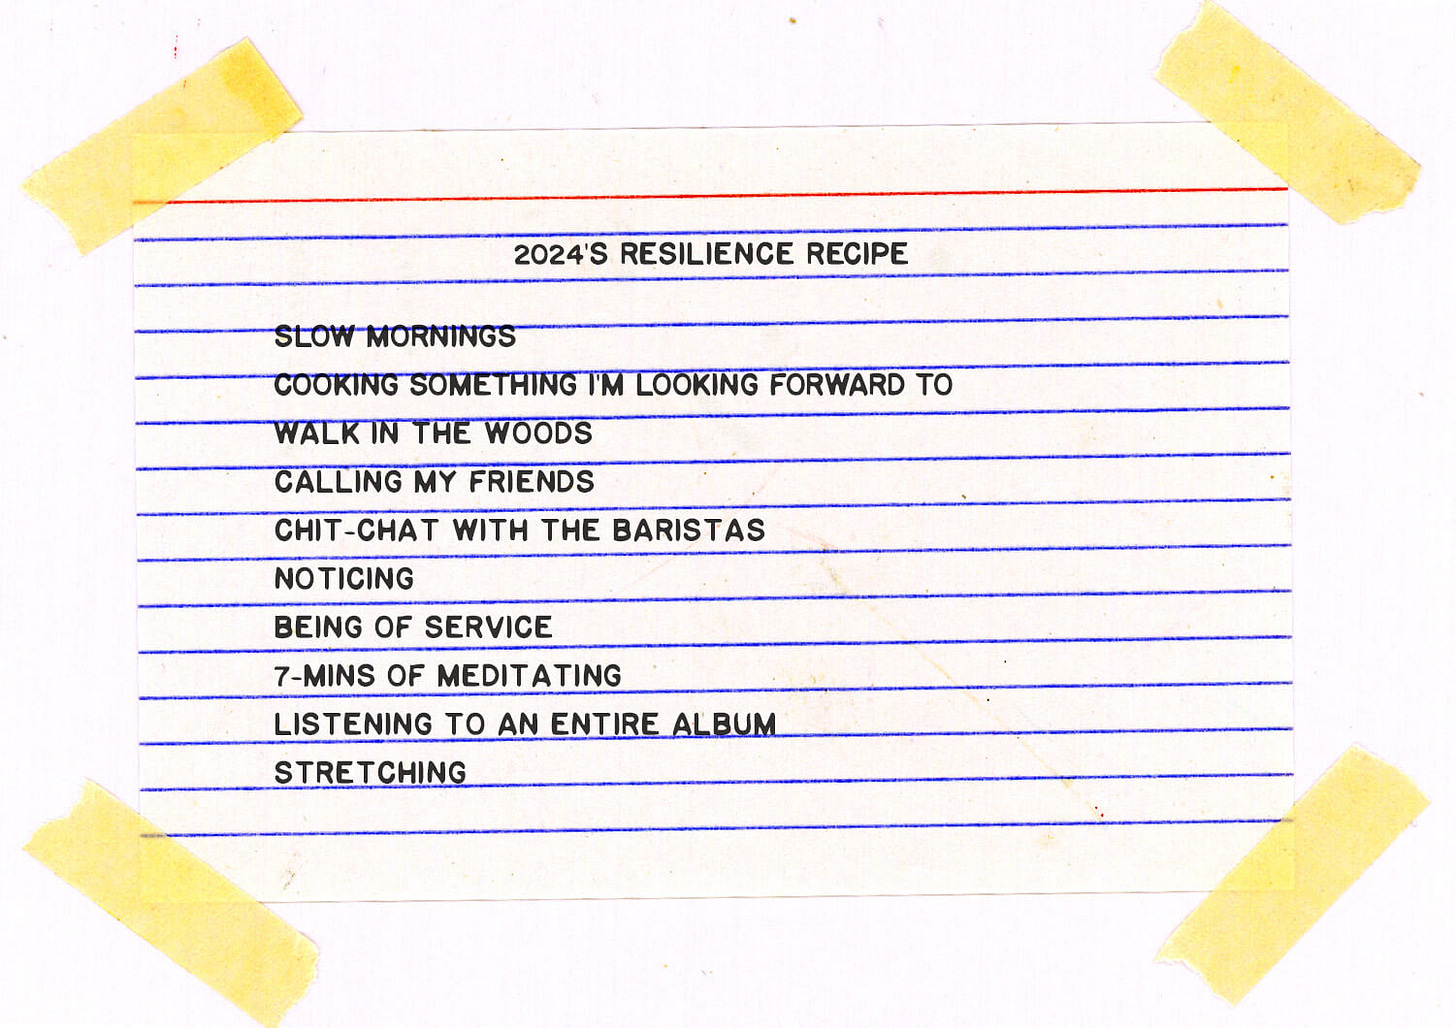 2024'S RESILIENCE RECIPE
SLOW MORNINGS
COOKING SOMETHING I'M LOOKING FORWARD TO
WALK IN THE WOODS
CALLING MY FRIENDS
CHIT-CHAT WITH THE BARISTAS
NOTICING
BEING OF SERVICE
7-MINS OF MEDITATING
LISTENING TO AN ENTIRE ALBUM
STRETCHING